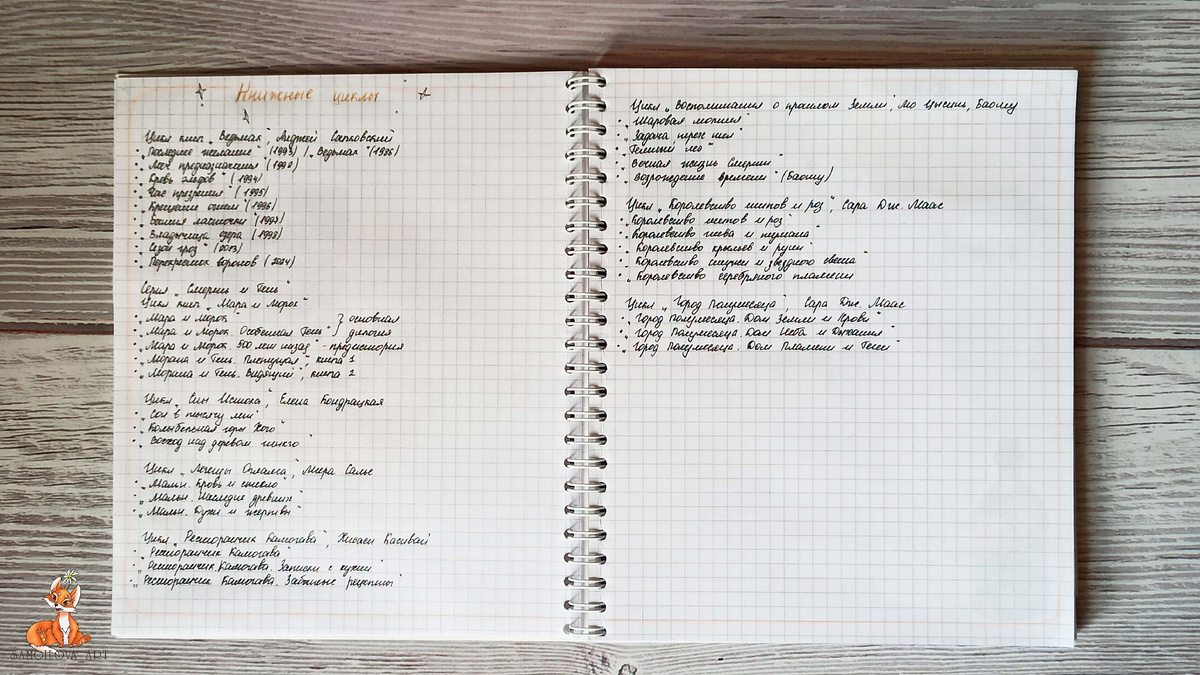 Книжные циклы
Цикл книг „Ведьмак", Анджей Сапковский
• „Последнее желание" (1993) / „Ведьмак" (1986)
• „Меч предназначения" (1992)
• „Кровь эльфов" (1994)
• „Час презрения" (1995)
• „Крещение огнем" (1996)
• „Башня ласточки" (1997)
• „Владычица озера" (1998)
• „Сезон гроз" (2013)
• „Перекресток воронов" (2024)
Серия „Смерть и Тень"
Цикл книг „Мара и Морок"
• „Мара и Морок" } основная
• „Мара и Морок. Особенная Тень" } дилогия
• „Мара и Морок. 500 лет назад" - предыстория
• „Морана и Тень. Плетущая", книга 1
• „Морана и Тень. Видящий", книга 2
Цикл „Сны Истока", Елена Кондрацкая
• „Сон в тысячу лет"
• „Колыбельная горы Хого"
• „Восход над деревом гинкго"
Цикл „Легенды Саламса", Мира Салье
• „Мальн. Кровь и стекло"
• „Мальн. Наследие древних"
• „Мальн. Духи и жертвы"
Цикл „Ресторанчик Камогава", Хисаси Касиваи
• „Ресторанчик Камогава"
• „Ресторанчик Камогава. Записки с кухни"
• „Ресторанчик Камогава. Забытые рецепты"
Цикл „Воспоминания о прошлом Земли", Лю Цысинь, Баошу
• „Шаровая молния"
• „Задача трех тел"
• „Темный лес"
• „Вечная жизнь Смерти"
• „Возрождение времени" (Баошу)
Цикл „Королевство шипов и роз", Сара Дж. Маас
• „Королевство шипов и роз"
• „Королевство гнева и тумана"
• „Королевство крыльев и руин"
• „Королевство стужи и звездного света"
• „Королевство серебряного пламени"
Цикл „Город Полумесяца" Сара Дж. Маас
• „Город Полумесяца. Дом Земли и Крови"
• „Город Полумесяца. Дом Неба и Дыхания"
• „Город Полумесяца. Дом Пламени и Теней"
SAMOILOVA_ART